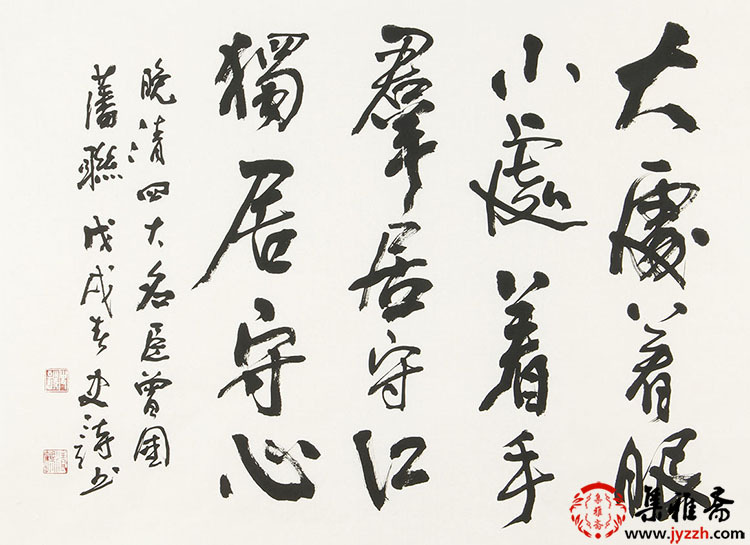 大處着眼
小處着手
羣居守口
獨居守心
晚清四大名臣曾國
藩聯 戊戌春
集雅斋
集雅斋
www.jyzzh.com